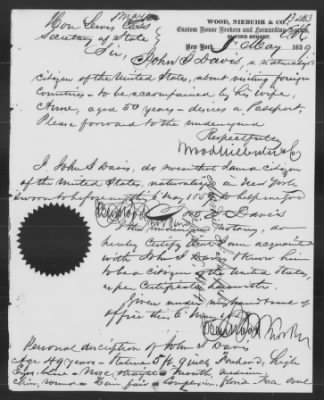 WOOD, NIEBUHR & CO.
Custom House Brokers and Forwarding Agents,
New York, May 185
Hon Lewis Cass
Secretary of State
Sir, John S Davis, a naturalized
citizen of the United States, about visiting foreign
Countries - to be accompanied by his wife,
Anne, aged 50 years - desires a Passport,
Please forward to the undersigned
Respectfully
Wood Niebuhr & Co
I John S. Davis, do swear that I am a citizen
of the United States, naturalized New York
sworn to before me this 6 May
Davis
I the undersigned notary, do
hereby Certify that I am acquainted
with John S Davis & know him
to be a citizen of the United States,
as per Certificate
Given under my hand & seal of
office this 6 May
Personal discription of John S Davis
Age 49 years - Stature 5 ft 9 inch Forehead, High
Eyes, blue - Nose, straight - mouth, medium
Chin, round - Hair, fair - Complexion, florid - Face oval